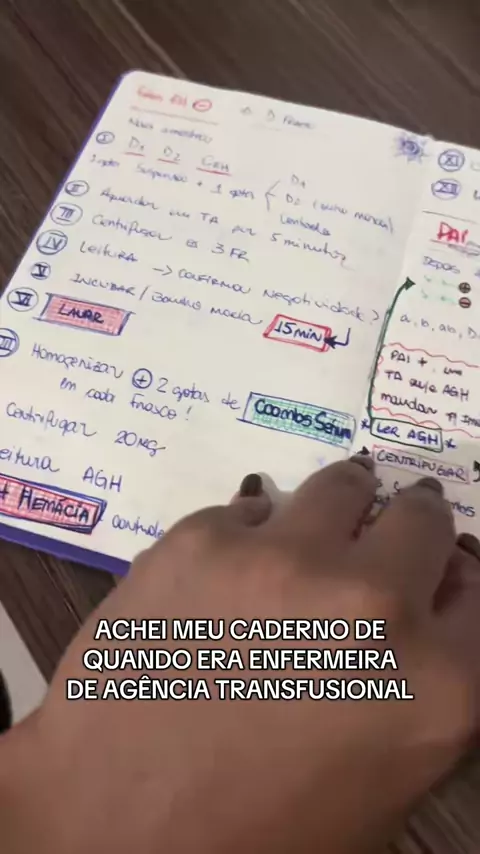 D Fraco
Nova amostra
I D1 D2 CRH
1 gota suspensão + 1 gota D1
D2 (soro
Controle
II Aguardar em TA por 5 minutos
III Centrifugar 15 3 FR
IV Leitura
→ Confirmou Negatividade?
V INCUBAR / Banho maria 15 MIN
VI LAVAR
Homogenizar + 2 gotas de Coombs Serum
em cada frasco!
Centrifugar
eitura AGH
+ HEMÁCIA controle
XI
XII
PAI
Depois
+
-
a, b, ab, D
PAI +
TA e/e AGH
mandar p/
* LER AGH *
CENTRIFUGAR
ACHEI MEU CADERNO DE
QUANDO ERA ENFERMEIRA
DE AGÊNCIA TRANSFUSIONAL